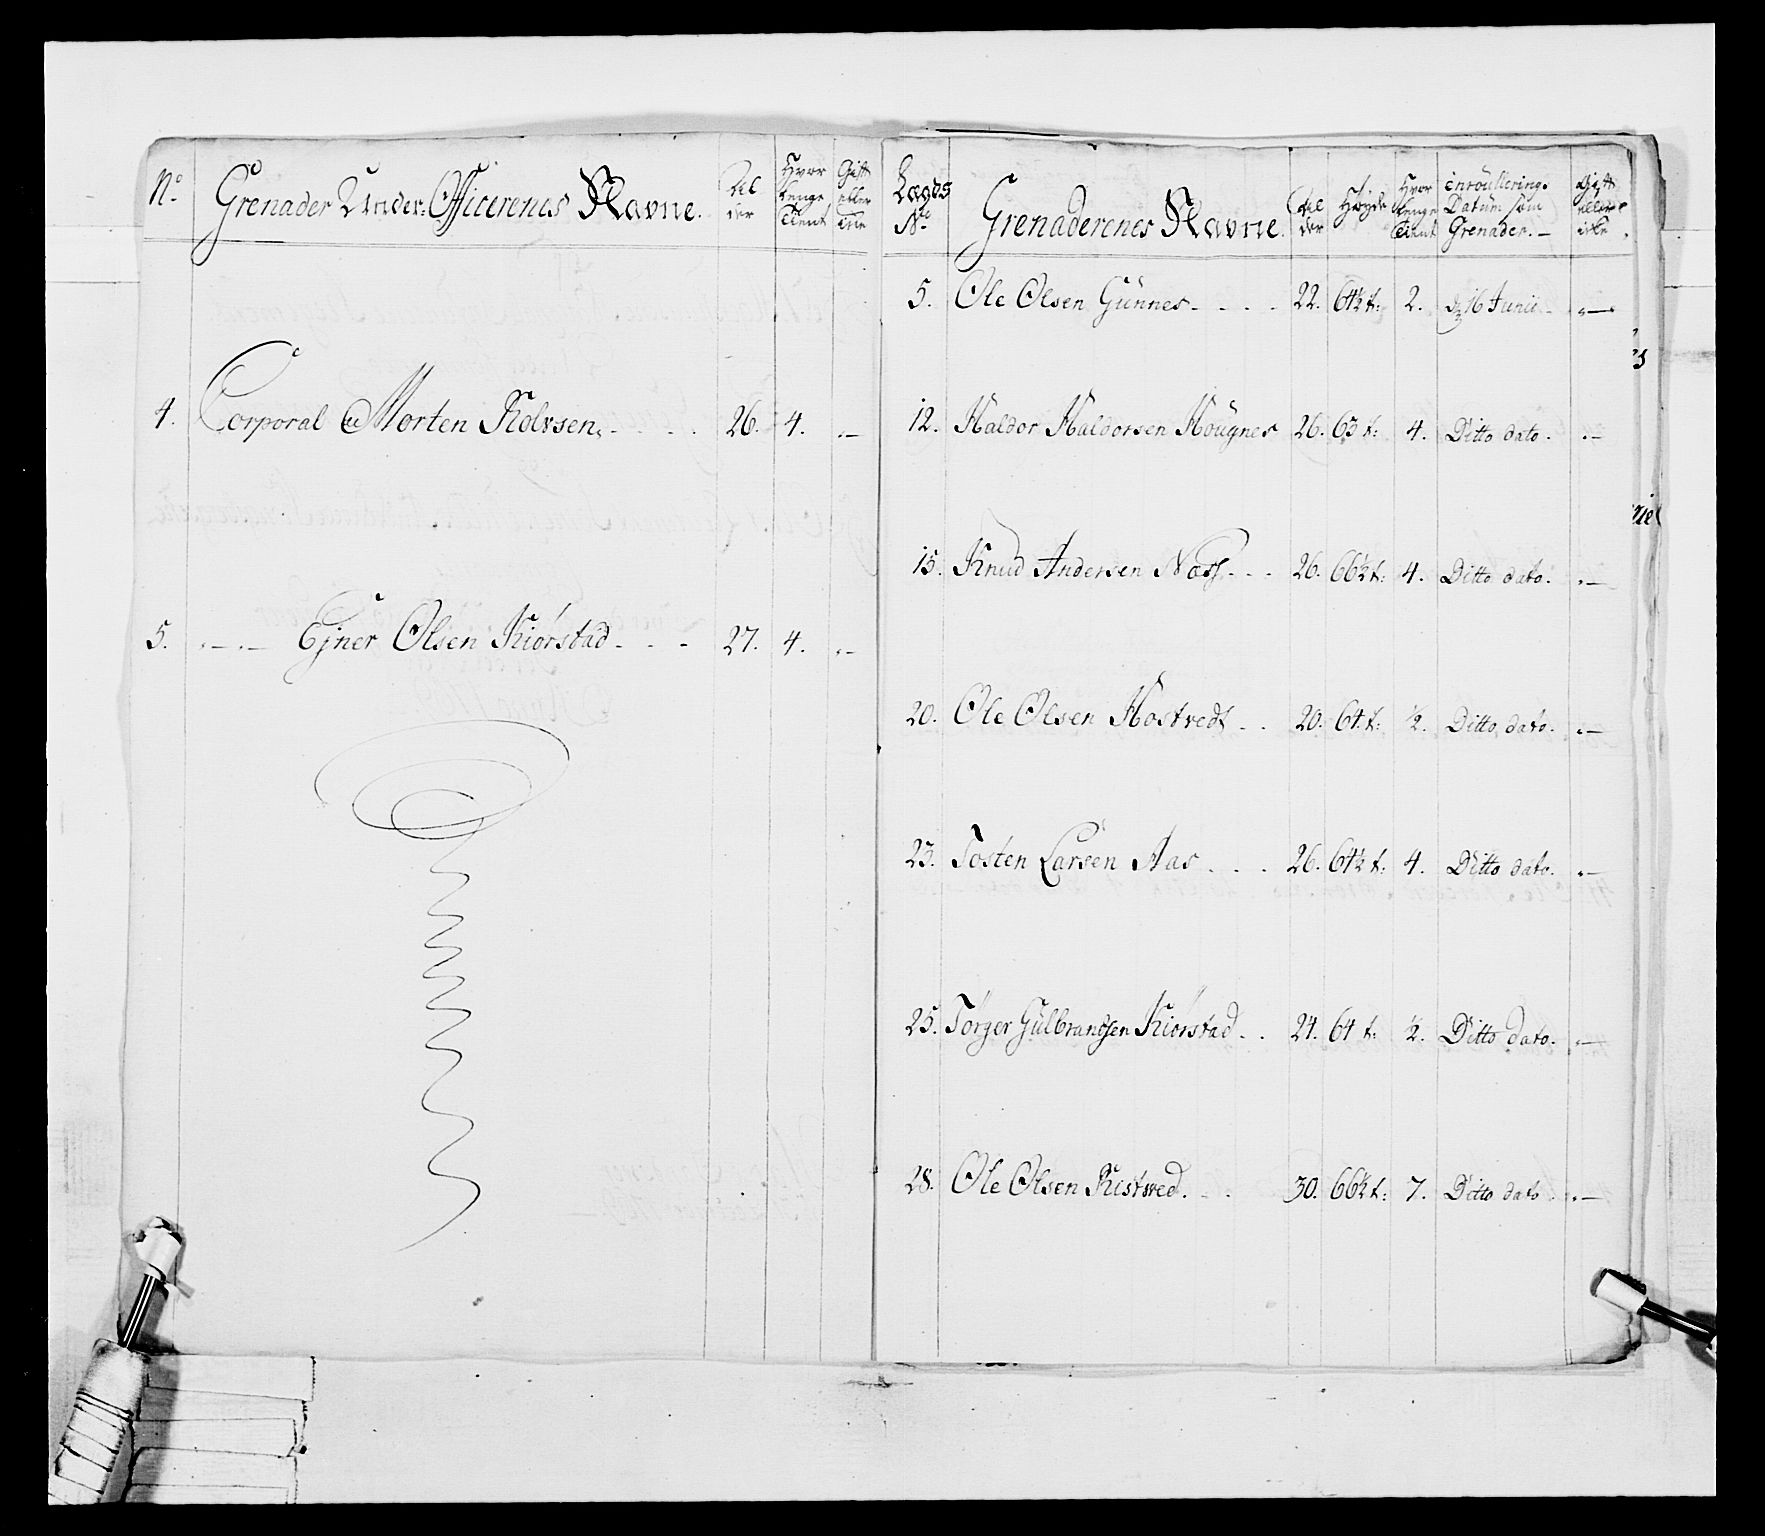 No. Grenader Under-Officerenes Navne. Alder Hvor lenge Tient Gift eller Eie
4. Corporal Morten Rolvsen. 26. 4. „—
5. „—„— Ejner Olsen Kiörstad 27. 4. „—
Lægds No. Grenaderenes Navne. Alder Høyde Hvor lenge Tient Enroullerings Datum som Grenader. — Gift eller icke
5. Ole Olsen Günnes 22. 64½ t: 2. d 16 Junii „—
12. Haldor Haldorsen Höugnes 26. 63 t: 4. Ditto dato. „—
15. Knud Andersen Næss 26. 66½ t: 4. Ditto dato. „—
20. Ole Olsen Hostvedt 20. 64. t: ½. Ditto dato. „—
23. Tosten Larsen Aas 26. 64½ t: 4. Ditto dato. „—
25. Törger Gülbrandsen Kiörstad 24. 64 t: ½. Ditto dato. „—
28. Ole Olsen Ristved. 30. 66½ t: 7. Ditto dato „—